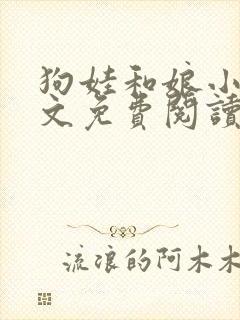 狗娃和娘小
文免費閱讀
流浪的阿木木